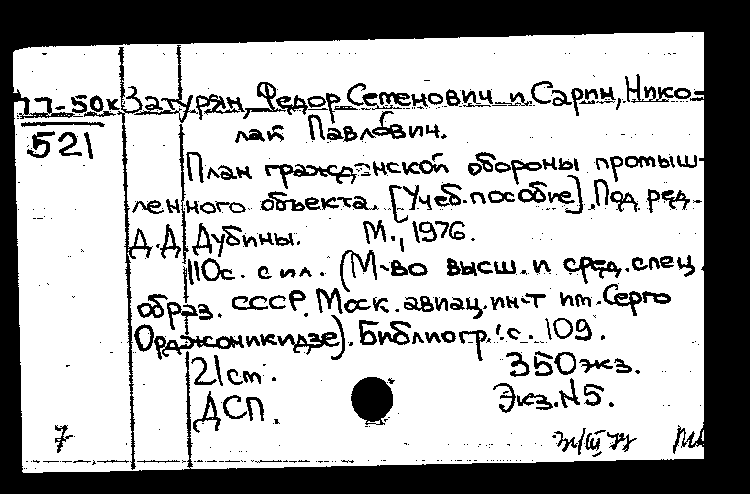 77-50к Затурян, Федор Семенович и Сарин, Нико-
521
лай Павлович.
План гражданской обороны промыш-
ленного объекта. [Учеб. пособие]. Под ред.
Д.Д. Дубины. М., 1976.
110с. с ил. (М-во высш. и сред. спец.
образ. СССР. Моск. авиац. ин-т им. Серго
Орджоникидзе). Библиогр.: с. 109.
21 см. 350 экз.
ДСП. Экз. №5.
7